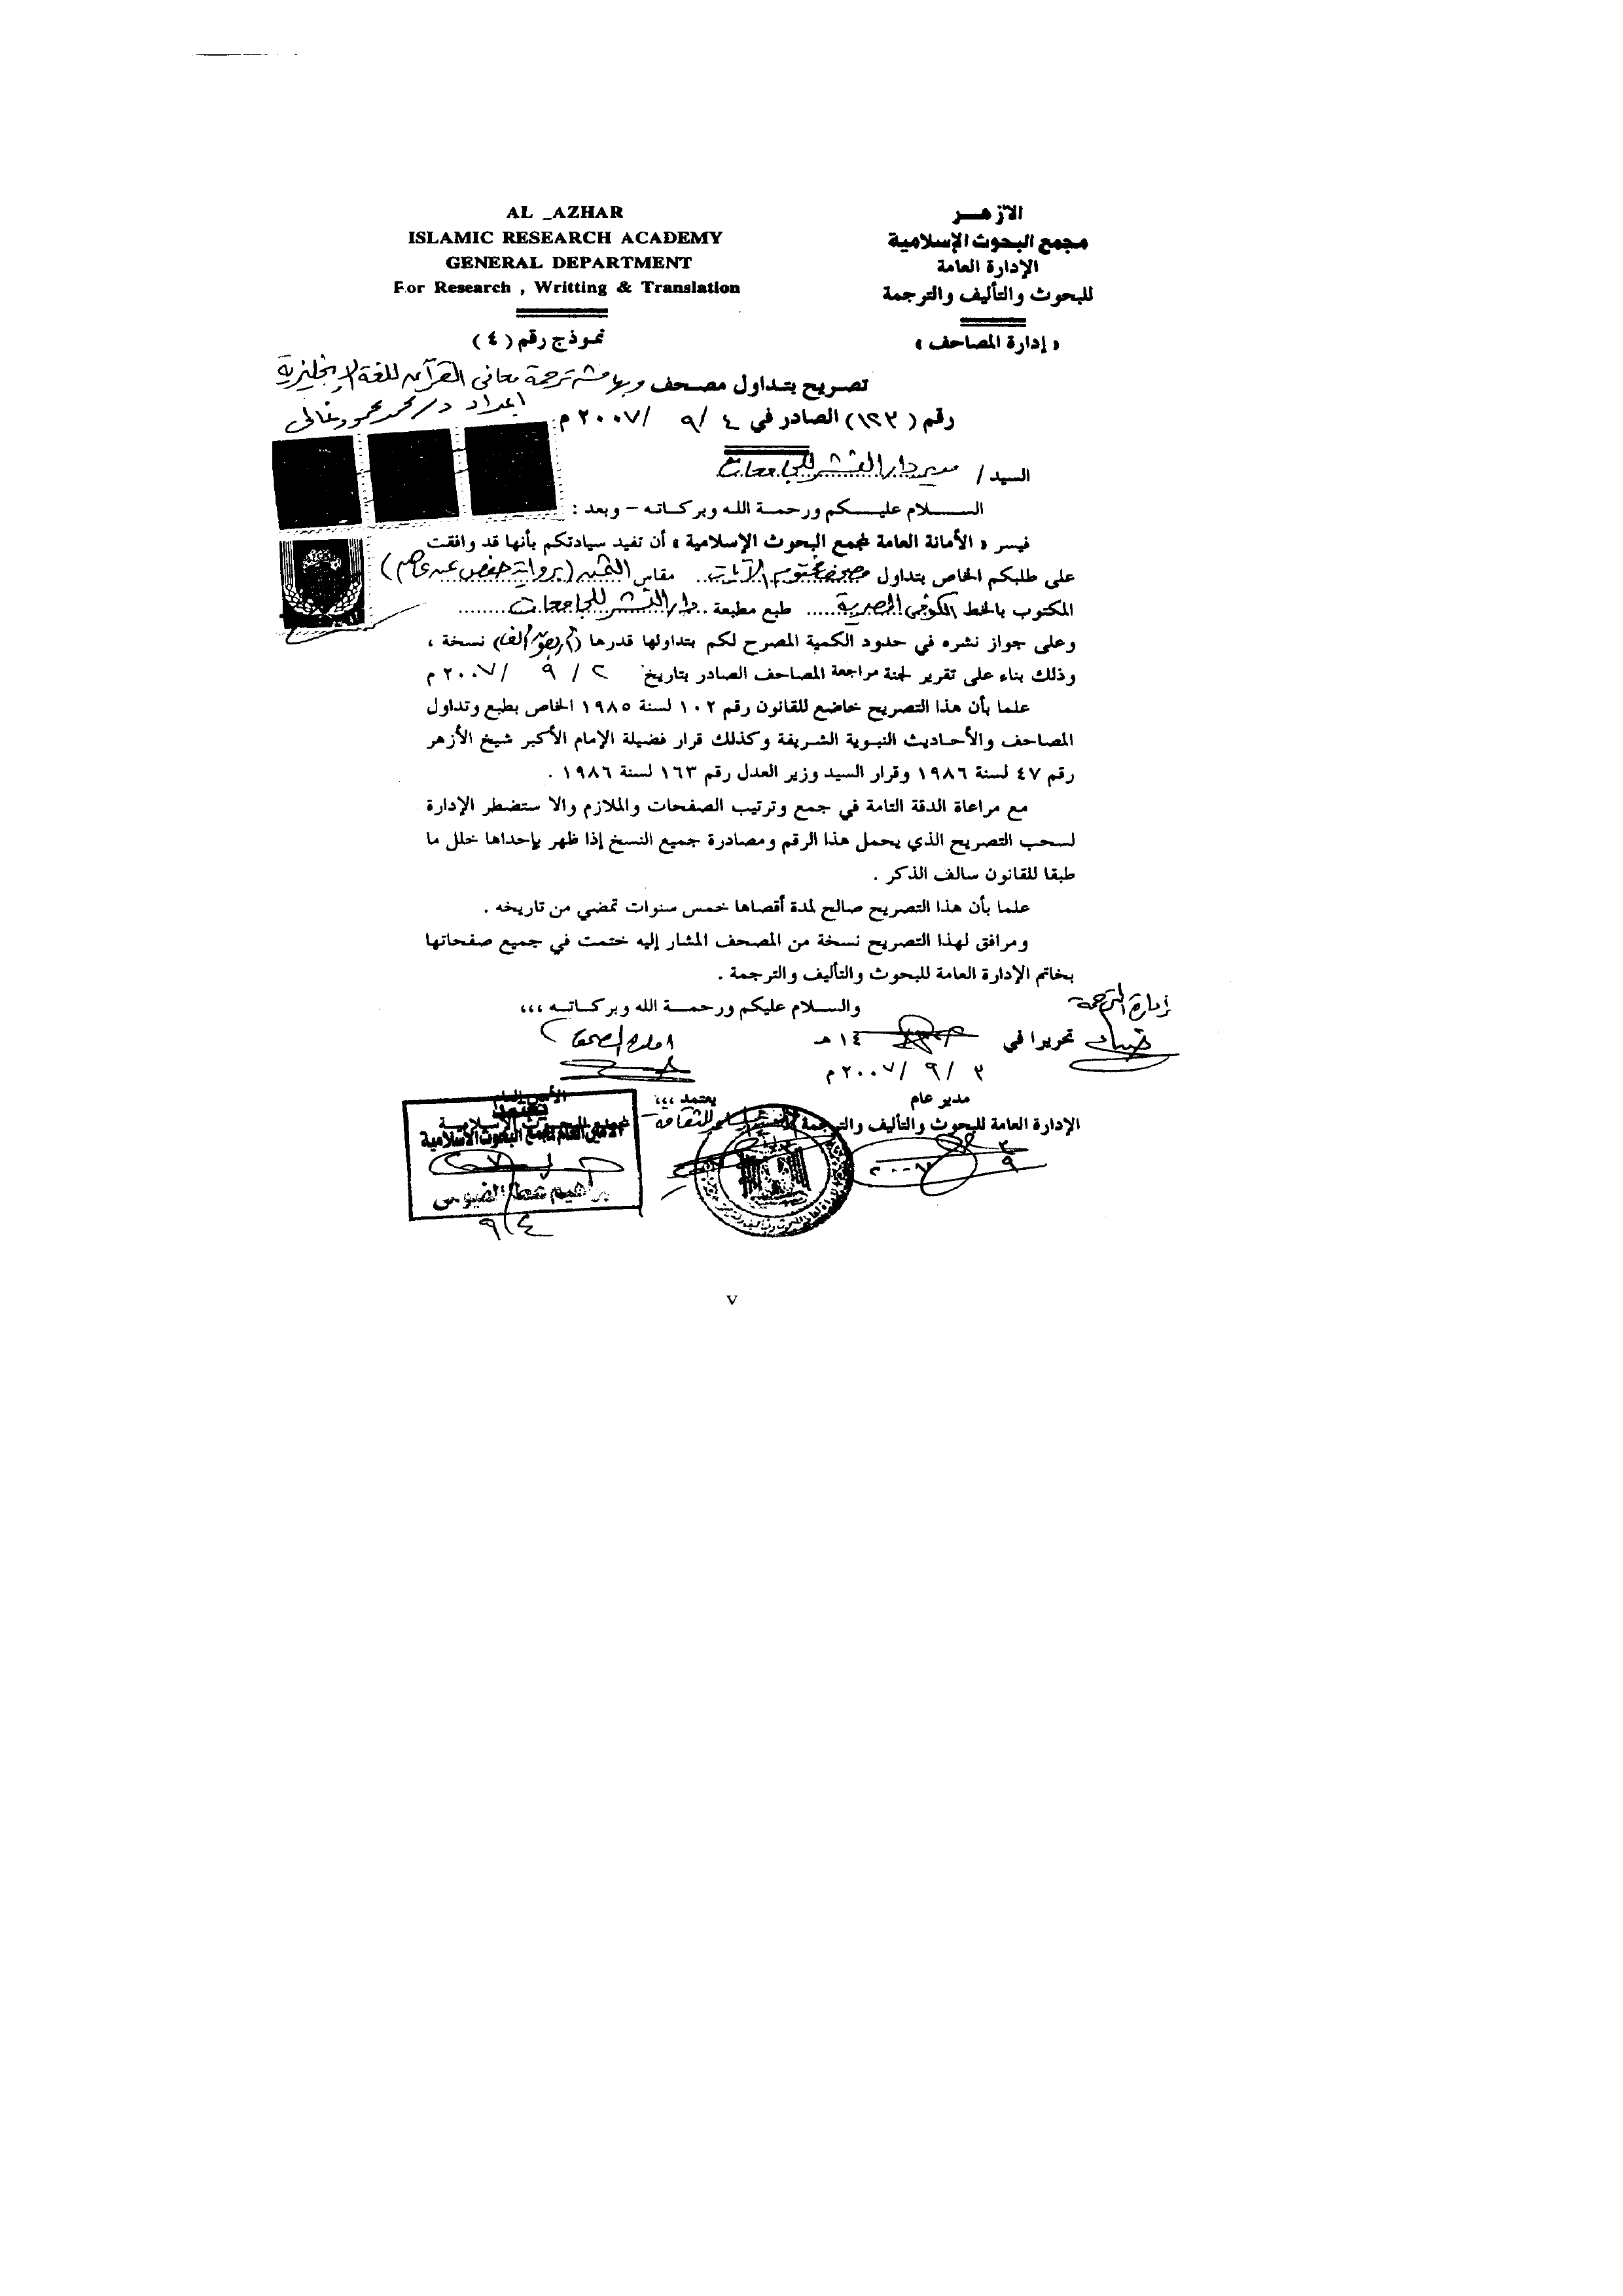 AL _AZHAR
ISLAMIC RESEARCH ACADEMY
GENERAL DEPARTMENT
For Research , Writting & Translation
نموذج رقم ( ٤ )
الأزهـــر
مجمع البحوث الإسلامية
الإدارة العامة
للبحوث والتأليف والترجمة
« إدارة المصاحف »
تصريح بتداول مصحف وبهامشه ترجمة معاني القرآن للغة الإنجليزية
إعداد د/ محمد محمود غالي
رقم ( ١٢٣ ) الصادر في ٤ / ٩ / ٢٠٠٧ م
السيد / مدير دار النشر للجامعات
الســـــلام عليــــكم ورحمــة اللـه وبركـاتـه – وبعد :
فيسر « الأمانة العامة لمجمع البحوث الإسلامية » أن تفيد سيادتكم بأنها قد وافقت
على طلبكم الخاص بتداول مصحف مختوم الآيات مقاس الثمن (برواية حفص عن عاصم)
المكتوب بالخط الكوفي المصرية طبع مطبعة دار النشر للجامعات
وعلى جواز نشره في حدود الكمية المصرح لكم بتداولها قدرها (أربعون ألف) نسخة ،
وذلك بناء على تقرير لجنة مراجعة المصاحف الصادر بتاريخ ٢ / ٩ / ٢٠٠٧ م
علما بأن هذا التصريح خاضع للقانون رقم ١٠٢ لسنة ١٩٨٥ الخاص بطبع وتداول
المصاحف والأحاديث النبوية الشريفة وكذلك قرار فضيلة الإمام الأكبر شيخ الأزهر
رقم ٤٧ لسنة ١٩٨٦ وقرار السيد وزير العدل رقم ١٦٣ لسنة ١٩٨٦ .
مع مراعاة الدقة التامة في جمع وترتيب الصفحات والملازم والا ستضطر الإدارة
لسحب التصريح الذي يحمل هذا الرقم ومصادرة جميع النسخ إذا ظهر بإحداها خلل ما
طبقا للقانون سالف الذكر .
علما بأن هذا التصريح صالح لمدة أقصاها خمس سنوات تمضي من تاريخه .
ومرافق لهذا التصريح نسخة من المصحف المشار إليه ختمت في جميع صفحاتها
بخاتم الإدارة العامة للبحوث والتأليف والترجمة .
والســـلام عليكم ورحمــــة الله وبركـــاتــه ،،،
إدارة الترجمة
تحريرا في ١٤ هـ
٣ / ٩ / ٢٠٠٧ م
مدير عام
الإدارة العامة للبحوث والتأليف والترجمة
يعتمد ،،،
الأمين العام
لمجمع البحوث الإسلامية
٩/٤
٧